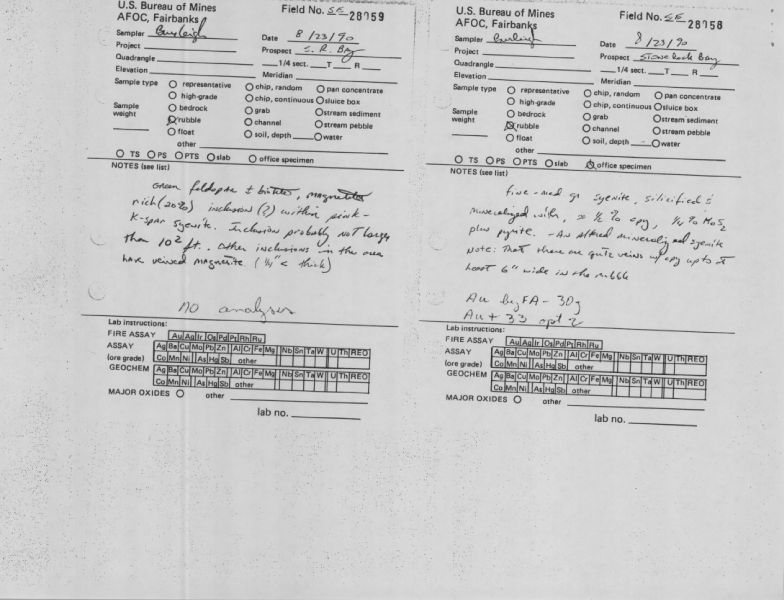 U.S. Bureau of Mines
AFOC, Fairbanks
Field No. SE 28959
Sampler Burleigh
Date 8/23/90
Project
Prospect S. R. Bay
Quadrangle
1/4 sect. T R
Elevation
Meridian
Sample type
representative
chip, random
pan concentrate
high-grade
chip, continuous
sluice box
Sample weight
bedrock
grab
stream sediment
rubble
channel
stream pebble
float
soil, depth
water
other
TS PS PTS slab office specimen
NOTES (see list)
Green feldspar ± biotite, magnetite
rich (20%) inclusion (?) within pink-
K-spar syenite. Inclusion probably not larger
than 10² ft. Other inclusions in the area
have veined magnetite (1/4" < thick)
no analyses
Lab instructions:
FIRE ASSAY Au Ag Ir Os Pd Pt Rh Ru
ASSAY Ag Ba Cu Mo Pb Zn Al Cr Fe Mg Nb Sn Ta W U Th REO
(ore grade) Co Mn Ni As Hg Sb other
GEOCHEM Ag Ba Cu Mo Pb Zn Al Cr Fe Mg Nb Sn Ta W U Th REO
Co Mn Ni As Hg Sb other
MAJOR OXIDES other
lab no.
U.S. Bureau of Mines
AFOC, Fairbanks
Field No. SE 28958
Sampler Burleigh
Date 8/23/90
Project
Prospect Stone Rock Bay
Quadrangle
1/4 sect. T R
Elevation
Meridian
Sample type
representative
chip, random
pan concentrate
high-grade
chip, continuous
sluice box
Sample weight
bedrock
grab
stream sediment
rubble
channel
stream pebble
float
soil, depth
water
other
TS PS PTS slab office specimen
NOTES (see list)
fine-med gr syenite, silicified &
mineralized with, ≈ 1/2 % cpy, 1/4 % MoS2
plus pyrite. - An altered mineralized syenite
Note: That there are qutz veins w/ cpy up to at
least 6" wide in the rubble
Au by FA - 30g
Au + 33 opt 2
Lab instructions:
FIRE ASSAY Au Ag Ir Os Pd Pt Rh Ru
ASSAY Ag Ba Cu Mo Pb Zn Al Cr Fe Mg Nb Sn Ta W U Th REO
(ore grade) Co Mn Ni As Hg Sb other
GEOCHEM Ag Ba Cu Mo Pb Zn Al Cr Fe Mg Nb Sn Ta W U Th REO
Co Mn Ni As Hg Sb other
MAJOR OXIDES other
lab no.